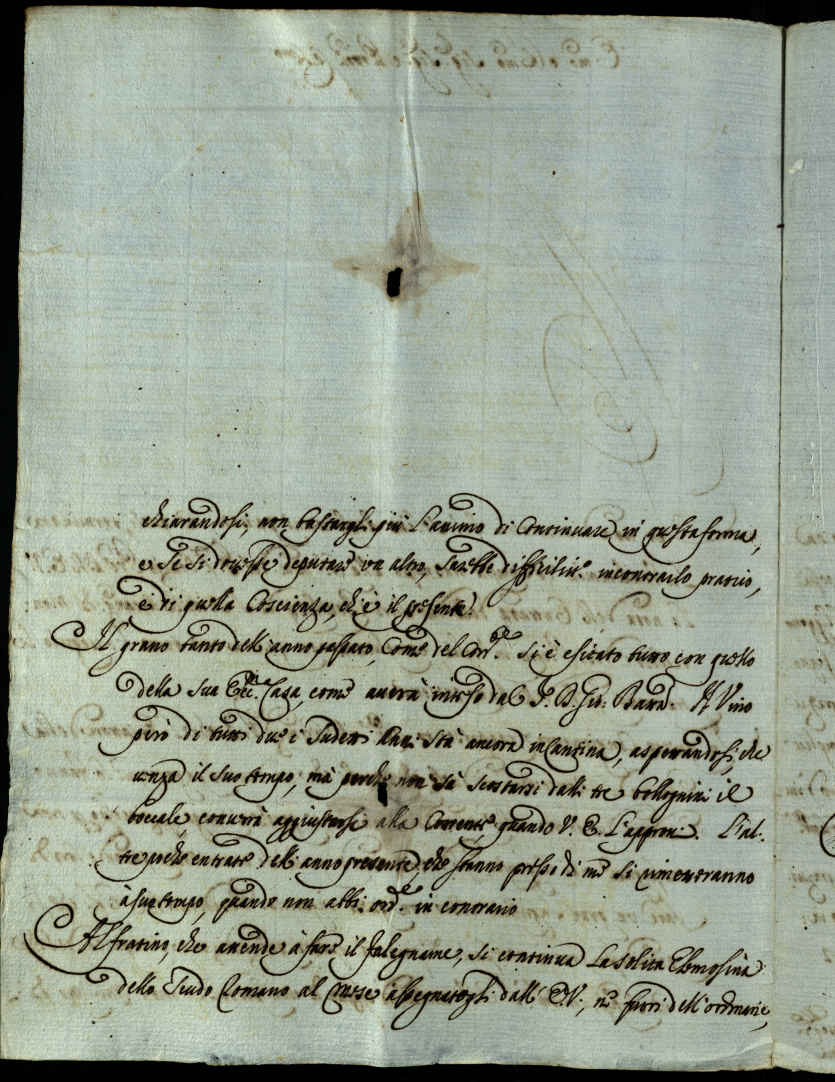 chiarandosi, non bastargli più l'animo di Continuare in questa forma,
e se si dovesse deputare un altro, sarebbe difficilm.e incontrarlo pratico,
e di quella Coscienza, ch'è il presente.
Il grano tanto dell'anno passato, Come del Corr.e si è esitato tutto con quello
della sua Ecc.ma Casa, come averà inteso dal S. D. Gio: Batta. Il Vino
però di tutti due i sudetti Anni stà ancora in Cantina, aspettandosi, che
venga il suo tempo, mà perche non sà scostarsi dalli tre bolognini il
boccale, converrà aggiustarsi alla Corrente quando V. E. l'approvi. L'al-
tre poche entrate dell'anno presente, che stanno presso di me si rimetteranno
à suo tempo, quando non abbi ord.e in contrario
Al fratino, che attende à fare il falegname, si continua la solita Elemosina
dello Scudo Romano al mese assegnatogli dall'E.V., ne fuori dell'ordinarie,